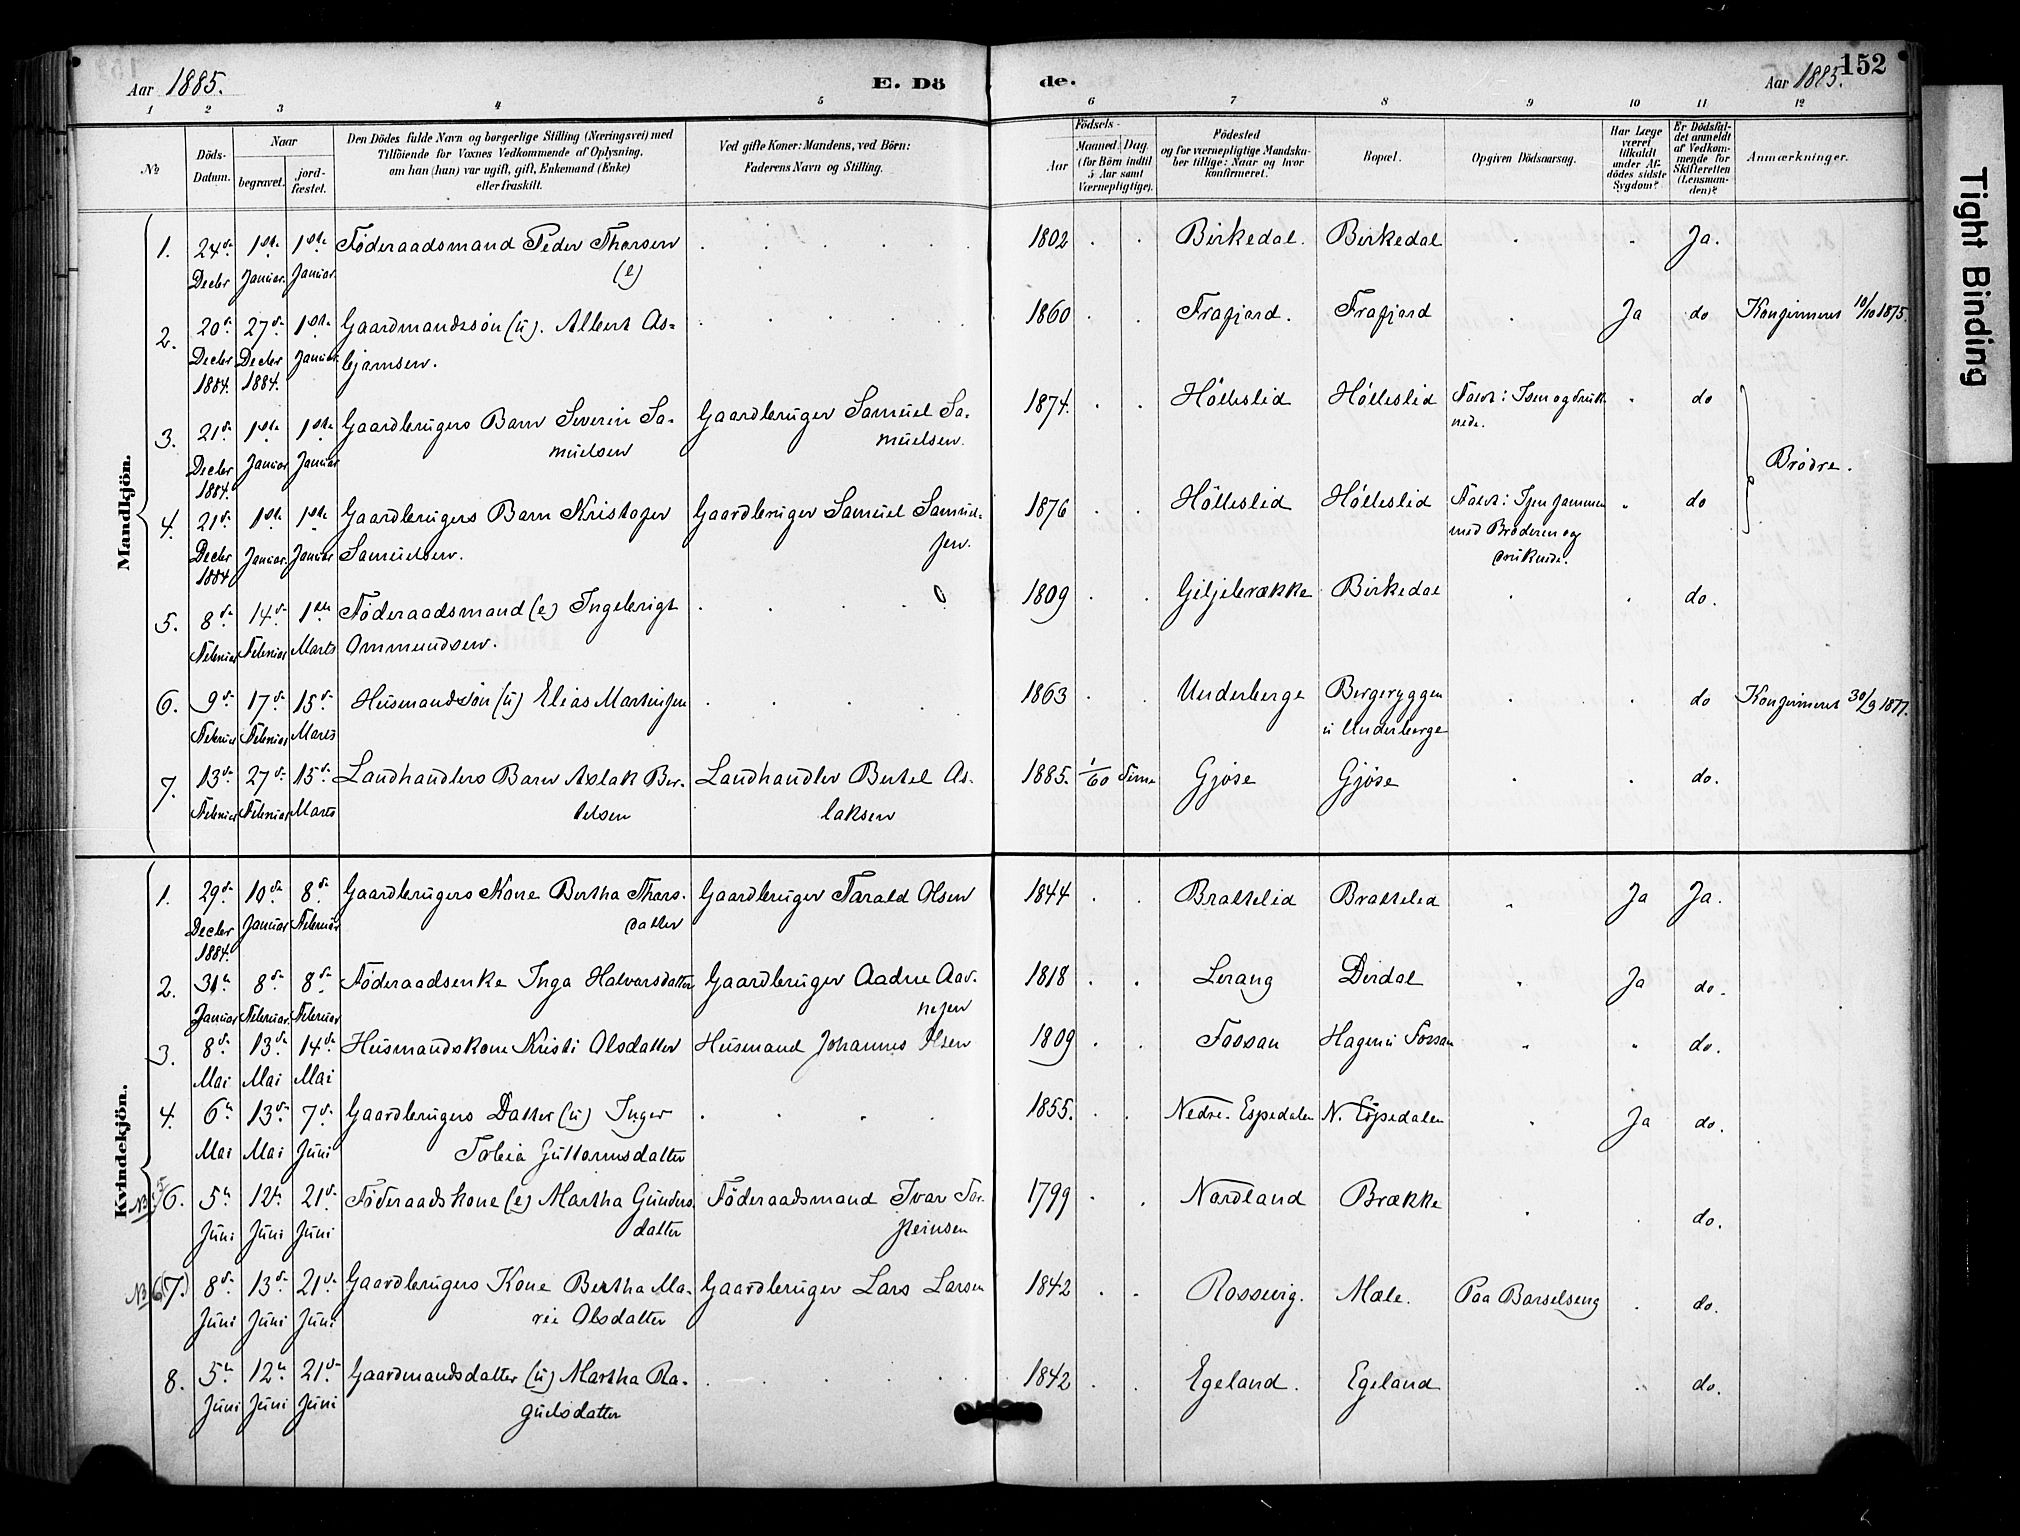 152
Aar 1885.
E. Dö
de.
Aar 1885.
1 2 3 4 5 6 7 8 9 10 11 12
No
Döds-Datum.
Naar
begravet.
jord-fæstet.
Den Dödes fulde Navn og borgerlige Stilling (Næringsvei) med
Tilföiende for Voxnes Vedkommende af Oplysning,
om han (hun) var ugift, gift, Enkemand (Enke)
eller fraskilt.
Ved gifte Koner: Mandens, ved Börn:
Faderens Navn og Stilling.
Födsels-
Aar
Maaned. Dag
(for Börn indtil
5 Aar samt
Værnepligtige).
Födested
og for værnepligtige Mandsku-
ber tillige: Naar og hvor
konfirmeret.
Bopæl.
Opgiven Dödsaarsag.
Har Læge
været
tilkaldt
under Af-
dödes sidste
Sygdom?
Er Dödsfal-
det anmeldt
af Vedkom-
mende for
Skifteretten
(Lensman-
den)?
Anmærkninger.
Tight Binding
Mandkjön.
1. 24de Decbr 1ste Januar. 1ste Januar Föderaadsmand Peder Thorsen (e) 1802 Birkedal. Birkedal Ja.
2. 20de Decbr 1884. 27de Decbr 1884. 1ste Januar Gaardmandssön (u). Albert As-
bjørnsen. 1860 Frafjord. Frafjord Ja do Konfirmeret 10/10 1875.
3. 21de Decbr 1884. 1ste Januar 1ste Januar Gaardbrugers Barn Severin Sa-
muelsen Gaardbruger Samuel Sa-
muelsen. 1874. Hölleslid Hölleslid Isen og druk-
nede. do
Brödre.
4. 21de Decbr 1884 1ste Januar. 1ste Januar Gaardbrugers Barn Kristofer
Samuelsen. Gaardbruger Samuel Samuel-
sen. 1876 Hölleslid Hölleslid Isen sammen
med Broderen og
druknede. do
5. 8de Februar 14de Februar 1ste Marts Föderaadsmand (e) Ingebrigt
Ommundsen. 1809 Giljebrække Birkedal do.
6. 9de Februar 17de Februar 15de Marts Husmandssön (u) Elias Martinsen 1863 Underberge Bergeryggen
u Underberge do Konfirmeret 30/9 1877.
7. 13de Februar 27de Februar 15de Marts Landhandlers Barn Aslak Ber-
telsen Landhandler Bertel As-
laksen 1885. 1/60 Time Gjöse Gjöse do.
Kvindekjön.
1. 29de Decbr 1884. 10de Januar 8de Februar Gaardbrugers Kone Bertha Thors-
datter Gaardbruger Tarald Olsen 1844 Brattelid Brattelid Ja Ja.
2. 31te Januar 8de Februar. 8de Februar Föderaadsenke Inga Halvorsdatter Gaardbruger Aadne Aad-
nesen 1818 Lerang Dirdal Ja do.
3. 8de Mai 13de Mai 14de Mai Husmandskone Kristi Olsdatter Husmand Johannes Olsen 1809 Fossan Hagen u Fossan do.
4. 6te Mai 13de Mai 7de Juni Gaardbrugers Datter (u) Inger
Tobia Guttormsdatter 1855. Nedre. Espedalen N. Espedalen Ja do.
NB 6. 5te Juni 12te Juni 21de Juni Föderaadskone (e) Martha Gunders-
datter Föderaadsmand Ivar Tor-
steinsen 1799 Nordland Brække do.
NB 6(7.) 8de Juni 13de Juni 21de Juni Gaardbrugers Kone Bertha Ma-
rie Olsdatter Gaardbruger Lars Larsen 1842 Rossevig. Mæle. Paa Barselseng do.
8. 5te Juni 12te Juni 21de Juni Gaardmandsdatter (u) Martha Ra-
guelsdatter 1842 Egeland. Egeland do.